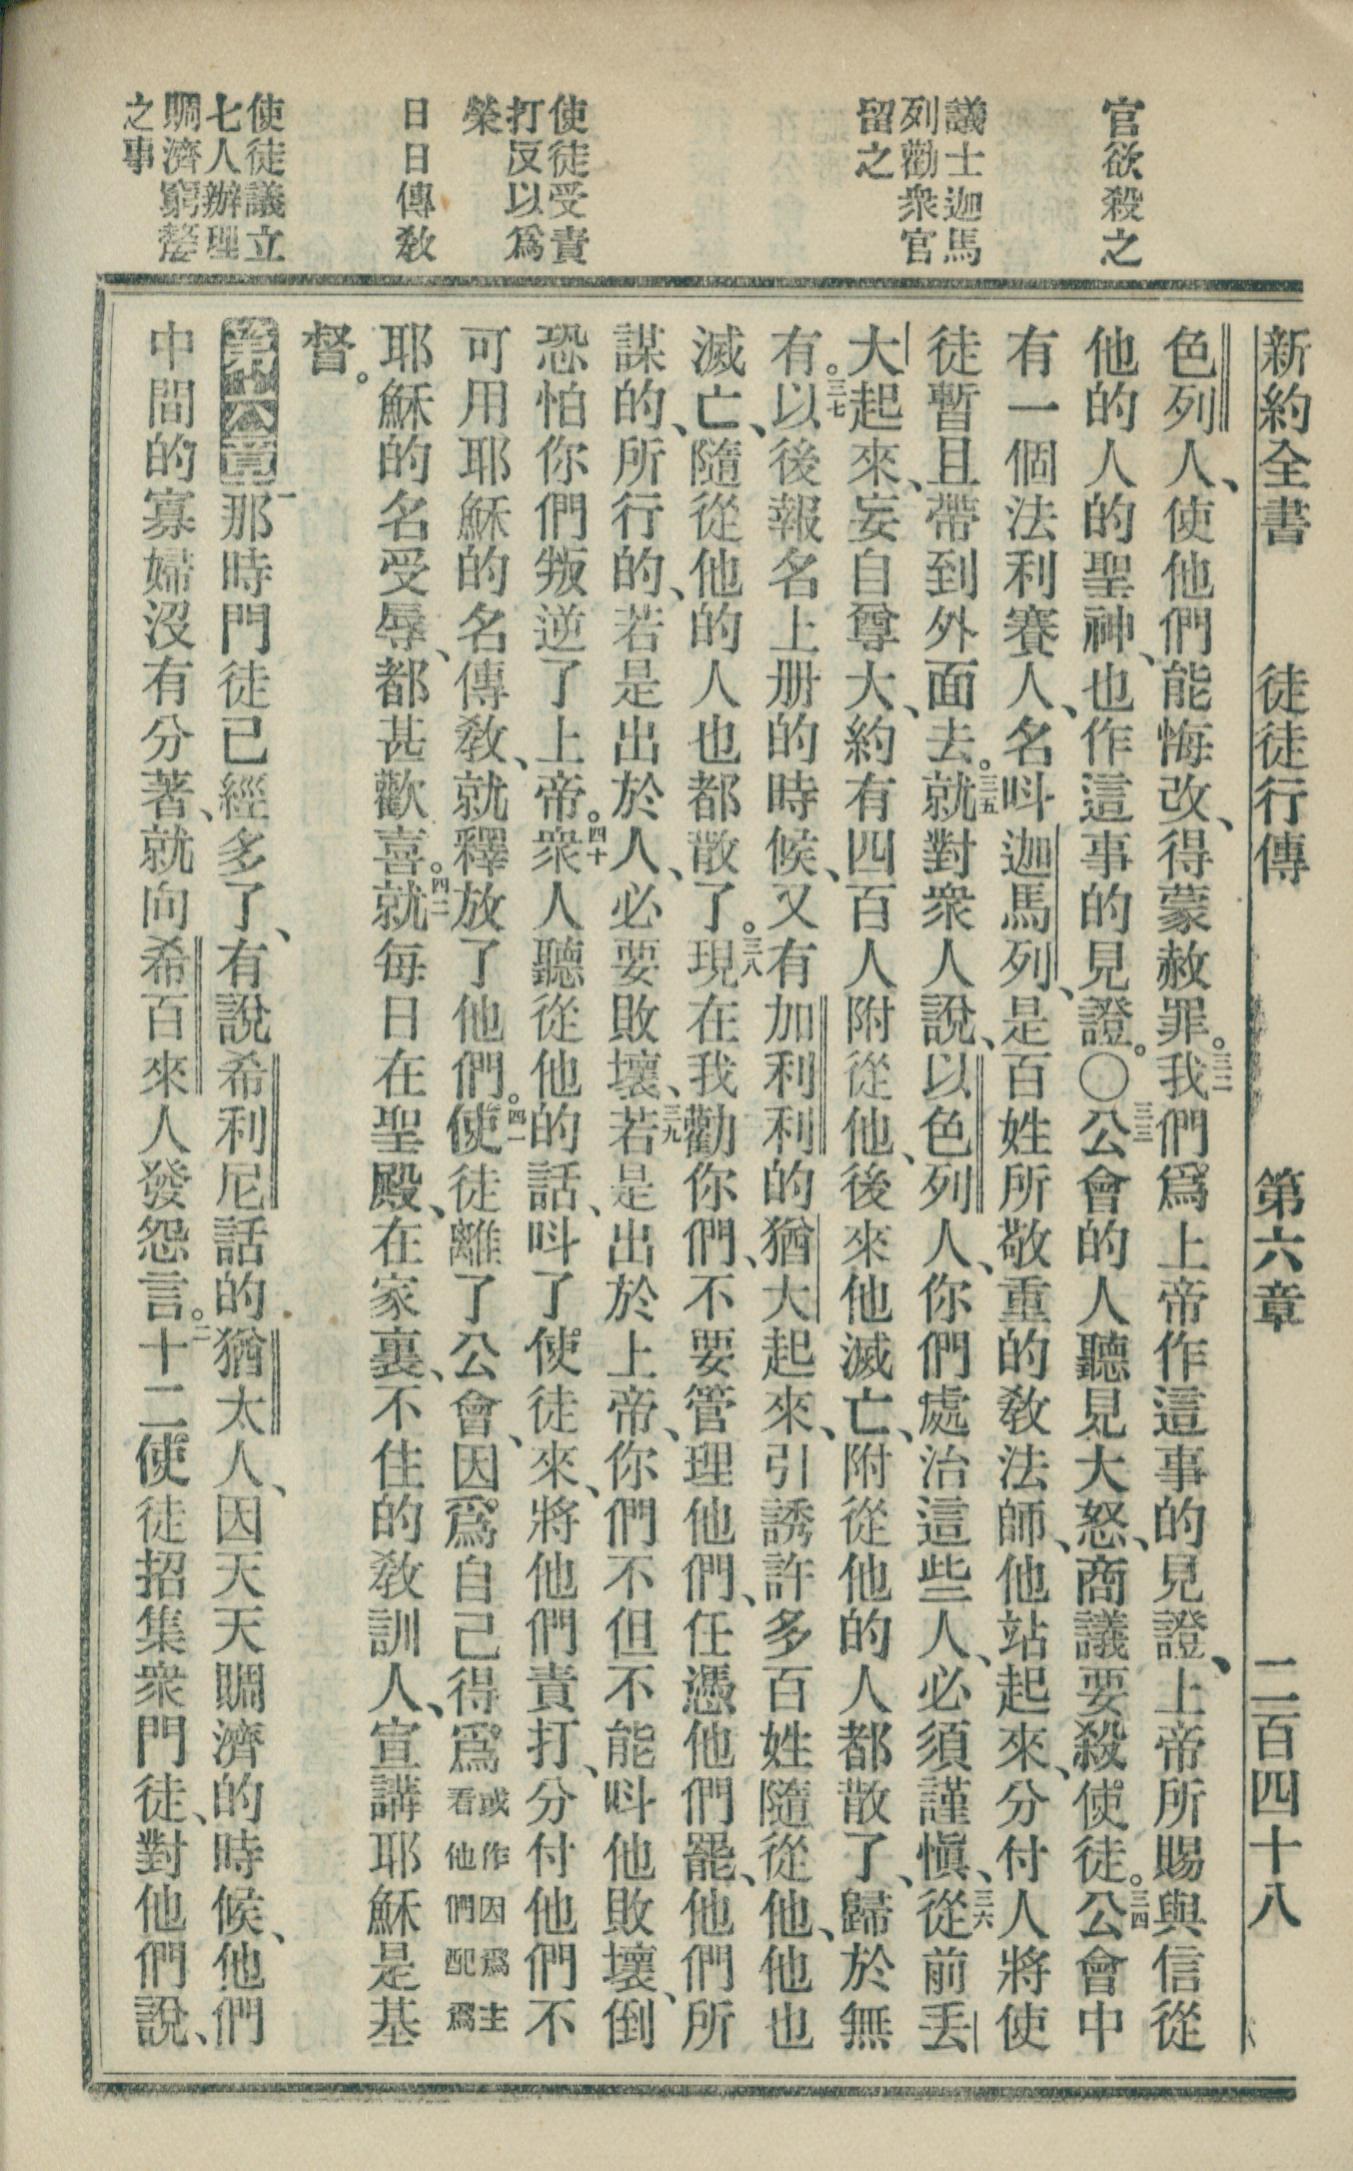 新約全書　徒徒行傳　第六章　二百四十八
官欲殺之
議士迦馬
列勸衆官
留之
使徒受責
打反以爲
榮
日日傳教
使徒議立
七人辦理
賙濟窮嫠
之事
色列人、使他們能悔改、得蒙赦罪。三二我們爲上帝作這事的見證、上帝所賜與信從
他的人的聖神、也作這事的見證。〇三三公會的人聽見大怒、商議要殺使徒。三四公會中
有一個法利賽人、名呌迦馬列、是百姓所敬重的教法師、他站起來、分付人將使
徒暫且帶到外面去。三五就對衆人說、以色列人、你們處治這些人、必須謹愼、三六從前丟
大起來、妄自尊大、約有四百人附從他、後來他滅亡、附從他的人都散了、歸於無
有。三七以後報名上册的時候、又有加利利的猶大起來、引誘許多百姓隨從他、他也
滅亡、隨從他的人也都散了。三八現在我勸你們、不要管理他們、任憑他們罷、他們所
謀的、所行的、若是出於人、必要敗壞、三九若是出於上帝、你們不但不能呌他敗壞、倒
恐怕你們叛逆了上帝。四十衆人聽從他的話、呌了使徒來、將他們責打、分付他們不
可用耶穌的名傳教、就釋放了他們。四一使徒離了公會、因爲自己得爲或作因爲主看他們配爲
耶穌的名受辱、都甚歡喜。四二就每日在聖殿、在家裏、不住的教訓人、宣講耶穌是基
督。
第六章一那時門徒已經多了、有說希利尼話的猶太人、因天天賙濟的時候、他們
中間的寡婦沒有分著、就向希百來人發怨言。二十二使徒招集衆門徒、對他們說、